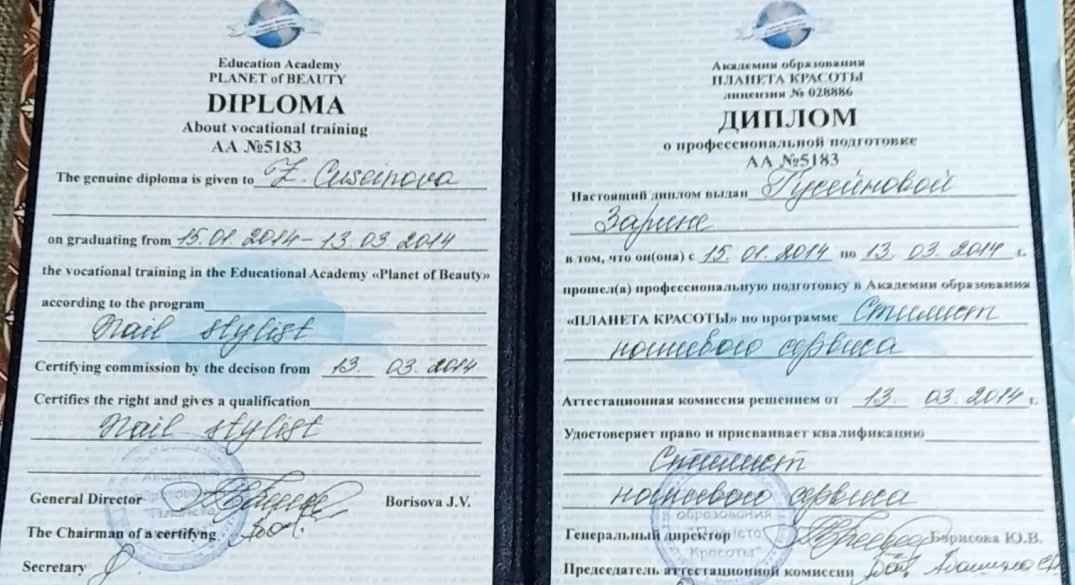 Education Academy
PLANET of BEAUTY
DIPLOMA
About vocational training
AA №5183
The genuine diploma is given to Z. Cuseinova
on graduating from 15.01 2014 – 13.03 2014
the vocational training in the Educational Academy «Planet of Beauty»
according to the program
Nail stylist
Certifying commission by the decison from 13. 03. 2014
Certifies the right and gives a qualification
Nail stylist
General Director Borisova J.V.
The Chairman of a certifyng
Secretary
Академия образования
ПЛАНЕТА КРАСОТЫ
лицензия № 028886
ДИПЛОМ
о профессиональной подготовке
АА №5183
Настоящий диплом выдан Гусейновой
Зарине
в том, что он(она) с 15. 01. 2014 по 13. 03. 2014 г.
прошел(а) профессиональную подготовку в Академии образования
«ПЛАНЕТА КРАСОТЫ» по программе Стилист
ногтевого сервиса
Аттестационная комиссия решением от 13. 03. 2014 г.
Удостоверяет право и присваивает квалификацию
Стилист
ногтевого сервиса
образования
"Планета
Красоты"
Генеральный директор Борисова Ю.В.
Председатель аттестационной комиссии